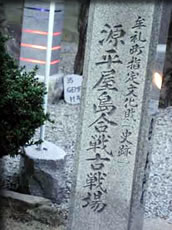 牟礼町指定文化財「史跡」
源平屋島合戦古戦場